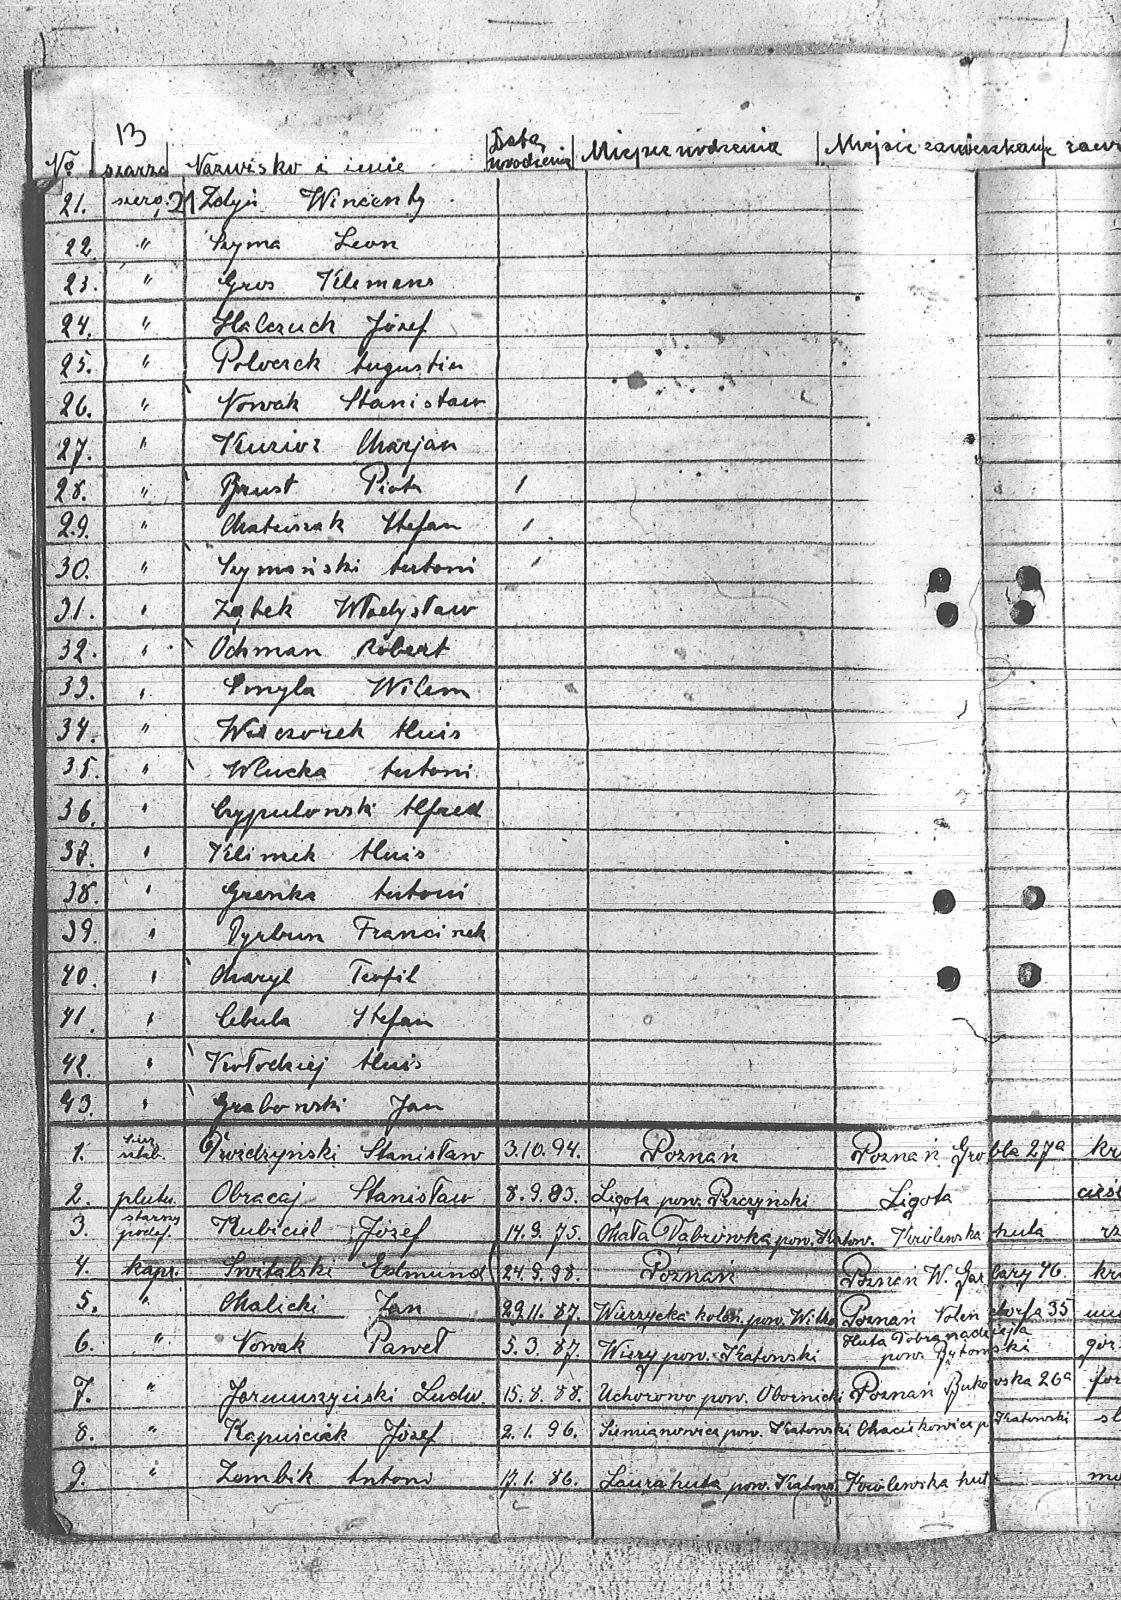 13
No szarza Nazwisko i imie Data urodzenia Miejsce urodzenia Miejsce zamieszkanje
21. szereg. 21 Zdyń Wincenty
22. " Szyma Leon
23. " Gros Klemens
24. " Halczuch Józef
25. " Poloczek Augustin
26. " Nowak Stanisław
27. " Kuzior Marjan
28. " Brust Piotr
29. " Matuszak Stefan
30. " Szymański Antoni
31. " Ząbek Władysław
32. " Ochman Robert
33. " Smyla Wilem
34. " Wieczorek Aluis
35. " Wlucka Antoni
36. " Cypulowski Alfred
37. " Klimek Aluis
38. " Grenka Antoni
39. " Dyrbun Francisek
40. " Maryl Teofil
41. " Cebula Stefan
42. " Kołodziej Aluis
43. " Grabowski Jan
1. sier. sztab. Stanisław 3.10.94. Poznań Poznań Grobla 27a
2. plutu. Obracaj Stanisław 8.9.95. Ligota pow. Ligota
3. starszy podof. Kubiciel Józef 14.9.75. Mała Dąbrowka pow. Katow. Krolewska huta
4. kapr. Switalski Edmund 24.9.98. Poznań Poznań W. Garbary 46.
5. " Malicki Jan 29.11.87. Wierzycka kolon. pow. Witko Poznań
6. " Nowak Paweł 5.3.87. pow. Katowski Huta Dobranadzieja pow. Bytomski
7. " Jarmuszyński Ludw. 15.8.88. Uchorowo pow. Obornicki Poznań Bukowska 26a
8. " Kapuściak Józef 2.1.96. Siemianowice pow. Katowski Maciekowice p. Katowski
9. " Zembik Antoni 17.1.86. Laurahuta pow. Katows. Krolewska hut